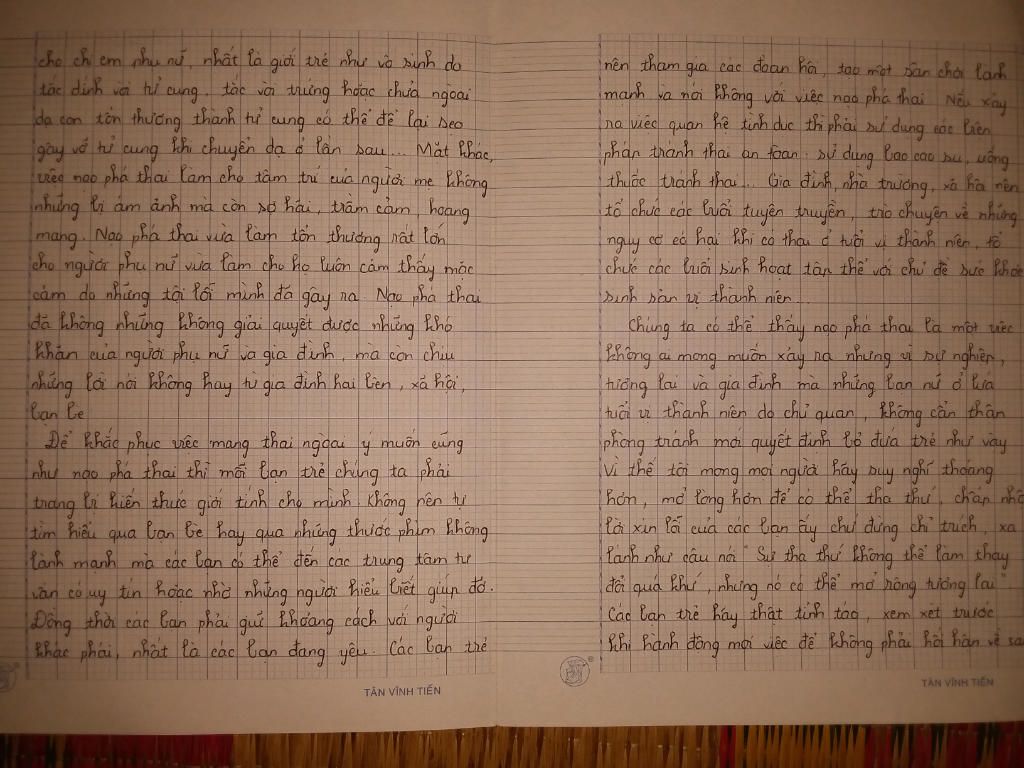 cho chị em phụ nữ, nhất là giới trẻ như vô sinh do
tắc dính vòi tử cung, tắc vòi trứng hoặc chửa ngoài
dạ con tổn thương thành tử cung có thể để lại sẹo
gây vỡ tử cung khi chuyển dạ ở lần sau... Mặt khác,
việc nạo phá thai làm cho tâm trí của người mẹ không
những bị ám ảnh mà còn sợ hãi, trầm cảm, hoang
mang. Nạo phá thai vừa làm tổn thương rất lớn
cho người phụ nữ vừa làm cho họ luôn cảm thấy mặc
cảm do những tội lỗi mình đã gây ra. Nạo phá thai
đã không những không giải quyết được những khó
khăn của người phụ nữ và gia đình, mà còn chịu
những lời nói không hay từ gia đình hai bên, xã hội,
bạn bè
Để khắc phục việc mang thai ngoài ý muốn cũng
như nạo phá thai thì mỗi bạn trẻ chúng ta phải
trang bị kiến thức giới tính cho mình. Không nên tự
tìm hiểu qua bạn bè hay qua những thước phim không
lành mạnh mà các bạn có thể đến các trung tâm tư
vấn có uy tín hoặc nhờ những người hiểu biết giúp đỡ.
Đồng thời các bạn phải giữ khoảng cách với người
khác phái, nhất là các bạn đang yêu. Các bạn trẻ
TÂN VĨNH TIẾN
nên tham gia các đoàn hội, tạo một sân chơi lành
mạnh và nói không với việc nạo phá thai. Nếu xảy
ra việc quan hệ tình dục thì phải sử dụng các biện
pháp tránh thai an toàn: sử dụng bao cao su, uống
thuốc tránh thai... Gia đình, nhà trường, xã hội nên
tổ chức các buổi tuyên truyền, trò chuyện về những
nguy cơ có hại khi có thai ở tuổi vị thành niên, tổ
chức các buổi sinh hoạt tập thể với chủ đề sức khỏe
sinh sản vị thành niên...
Chúng ta có thể thấy nạo phá thai là một việc
không ai mong muốn xảy ra nhưng vì sự nghiệp,
tương lai và gia đình mà những bạn nữ ở lứa
tuổi vị thành niên do chủ quan, không cẩn thận
phòng tránh mới quyết định bỏ đứa trẻ như vậy
Vì thế tôi mong mọi người hãy suy nghĩ thoáng
hơn, mở lòng hơn để có thể tha thứ, chấp nhậ
lời xin lỗi của các bạn ấy chứ đừng chỉ trích, xa
lánh như câu nói "Sự tha thứ không thể làm thay
đổi quá khứ, nhưng nó có thể mở rộng tương lai"
Các bạn trẻ hãy thật tỉnh táo, xem xét trước
khi hành động mọi việc để không phải hối hận về sa
TÂN VĨNH TIẾN